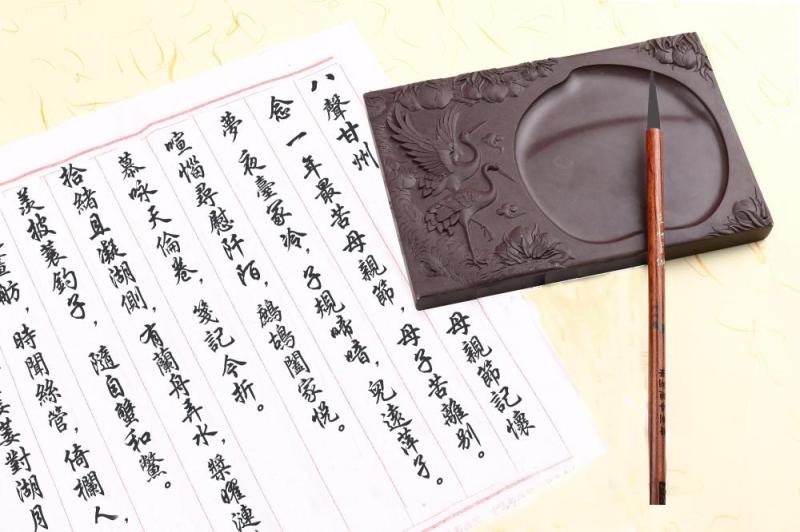 八聲甘州 母親節記懷
念一年最苦母親節，母子苦離別。
夢夜臺冢冷，子規啼喑，兒遠萍子。
喧惱尋慰阡陌，鷓鴣闔家悅。
慕咏天倫卷，箋記今折。
拾緒且凝湖側，有蘭舟弄水，槳曜漣
羨披蓑釣子，隨自蟹和鱉。
畫舫，時聞絲管，倚欄人，
萋對湖月